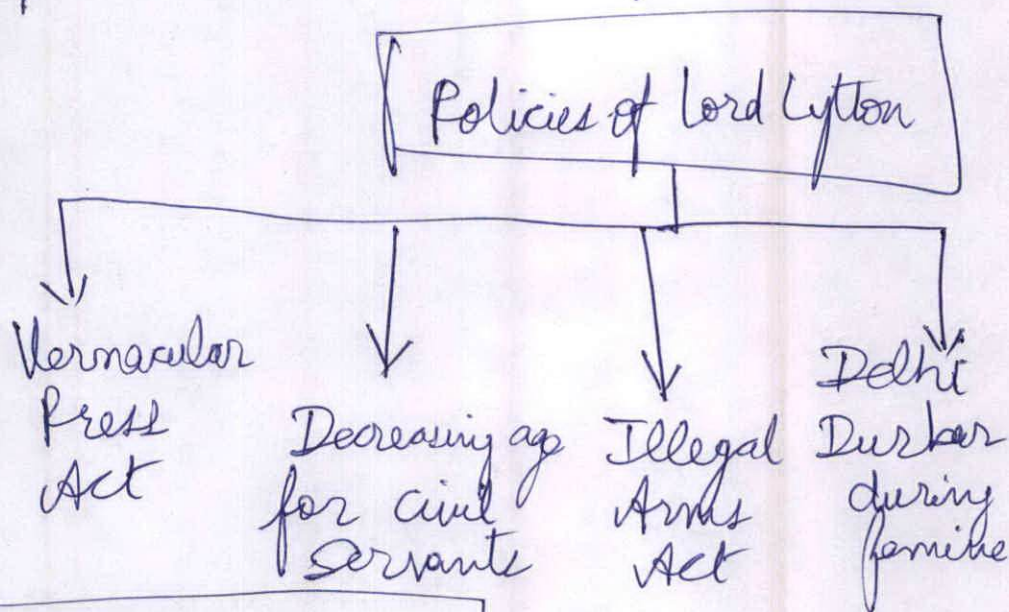 Policies of Lord Lytton
Vernacular
Press
Act
Decreasing age
for civil
Servants
Illegal
Arms
Act
Delhi
Durbar
during
famine